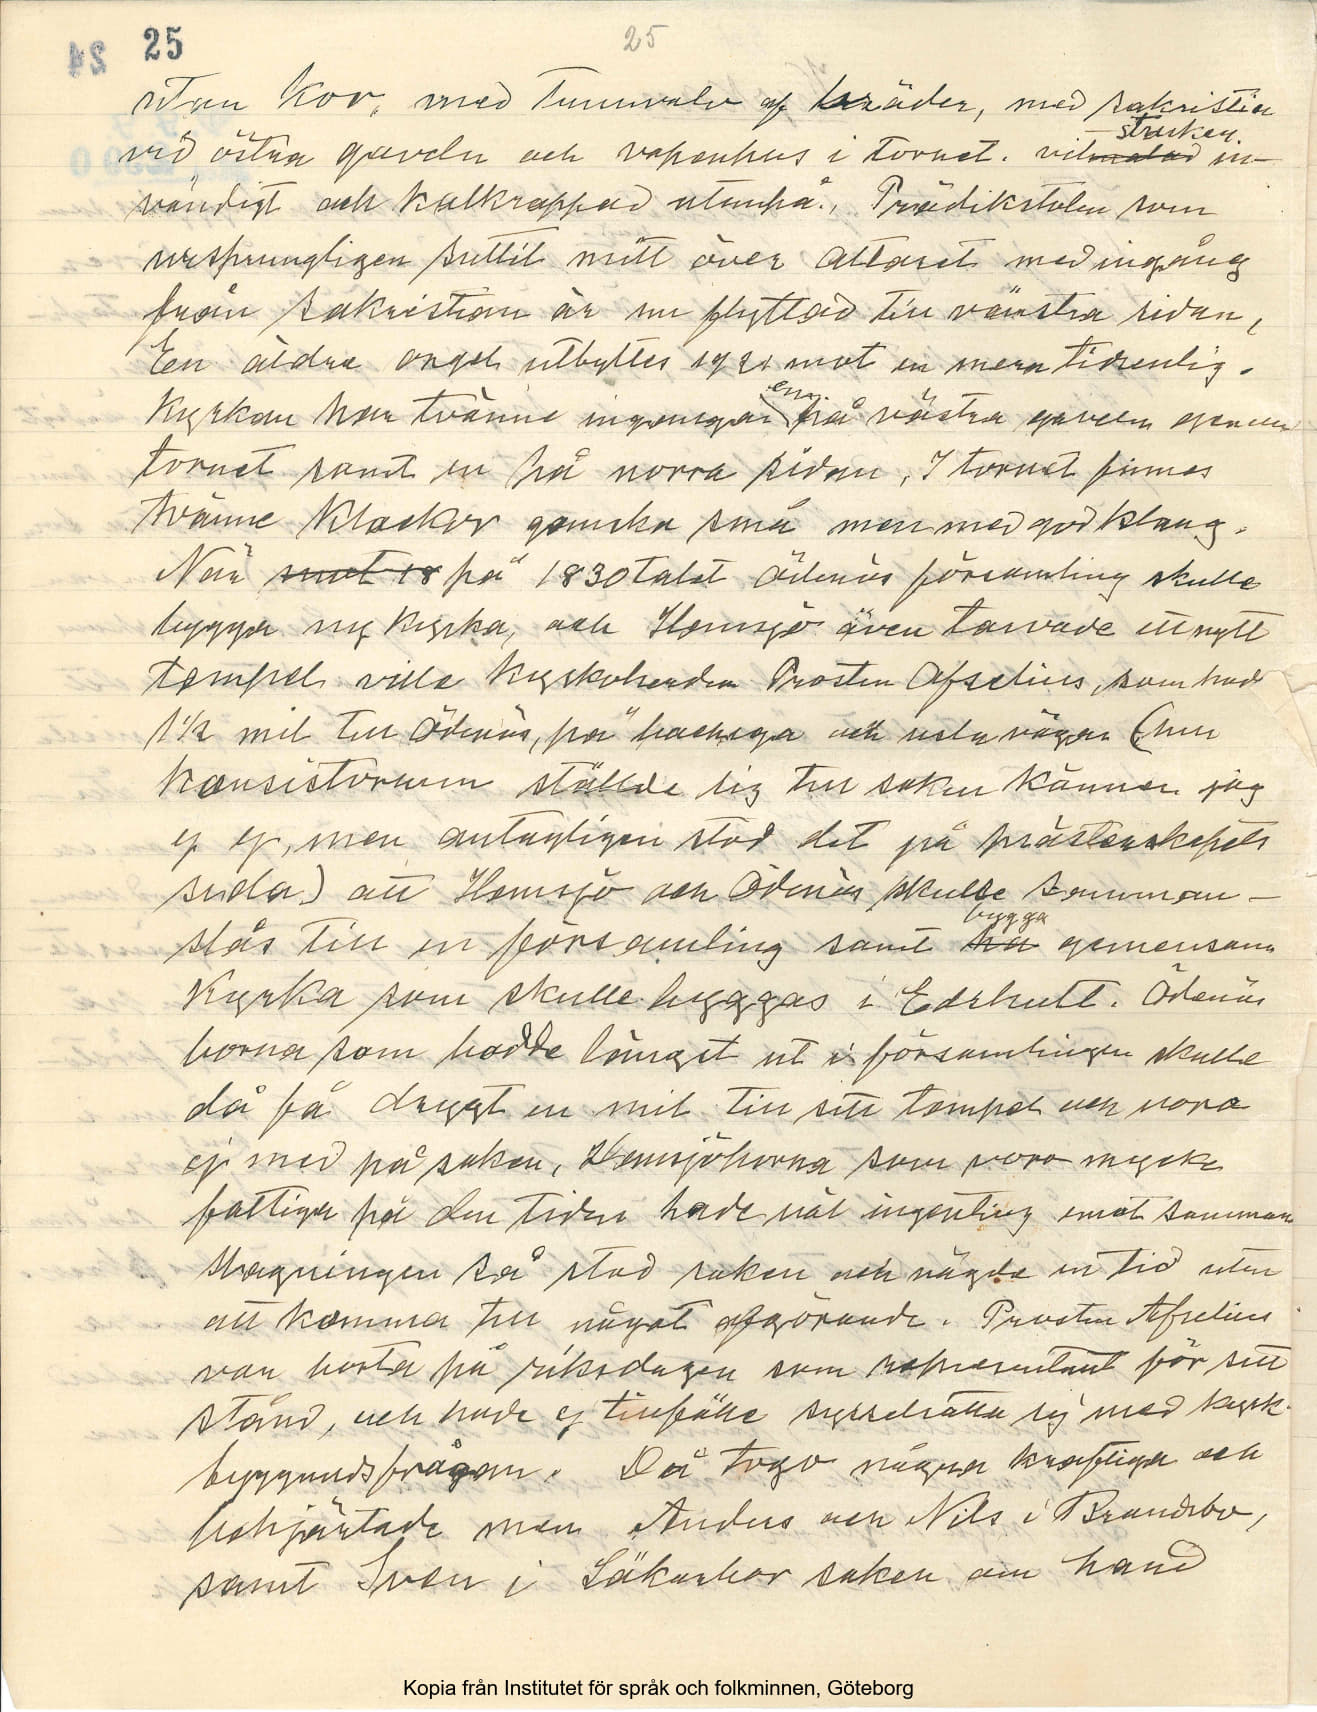 25
25
utan kor, med tunnvalv af bräder, med sakristia
vid östra gaveln och vapenhus i tornet. vitmalad struken in-
vändigt och kalkrappad utanpå., Prädikstolen som
ursprungligen suttit mitt över altaret med ingång
från sakristian är nu flyttad till vänstra sidan,
En äldre orgel utbyttes 1921 mot en mera tidsenlig.
Kyrkan har tvänne ingångar en på västra gaveln genom
tornet samt en på norra sidan, I tornet finnes
tvänne klockor ganska små men med god klang.
När mot 18 på 1830talet Ödenäs församling skulle
bygga ny kyrka, och Hemsjö även tarvade ett nytt
tempel ville kyrkoherden Prosten Afzelius, som had
1½ mil till Ödenäs, på backiga och usla vägar (hur
konsistorium ställde sig till saken känner jag
ej ej, men antagligen stod det på prästerskapets
sida) att Hemsjö och Ödenäs skulle samman-
slås till en församling samt ha bygga gemensam
kyrka som skulle byggas i Edshult. Ödenäs
borna som bodde längst ut i församlingen skulle
då få drygt en mil till sitt tempel och voro
ej med på saken, Hemsjöborna som voro mycke
fattiga på den tiden hade nåt ingenting emot samman
slagningen så stod saken och vägde en tid utan
att komma till något afgörande. Prosten Afzelius
var borta på riksdagen som representant för sitt
stånd, och hade ej tillfälle sysselsätta sig med kyrk-
byggnadsfrågan. Då togo några kraftiga och
behjärtade män Anders och Nils i Brandsbo,
samt Sven i saken om hand
Kopia från Institutet för språk och folkminnen, Göteborg